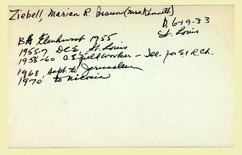 Ziebell, Marian R. Braun (Mrs. Kenneth)
D 6-19-33
St. Louis
BA Elmhurst 1955
1955-7 DCE, St. Louis
1958-60 Field Worker - Sec. for E & R Ch.
1968, Sept. to Jerusalem
1970 to Nicosia